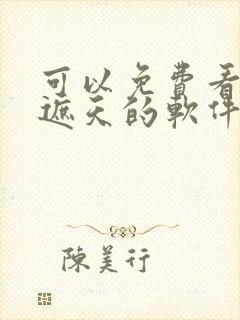 可以免費看
遮天的軟件
陳美行